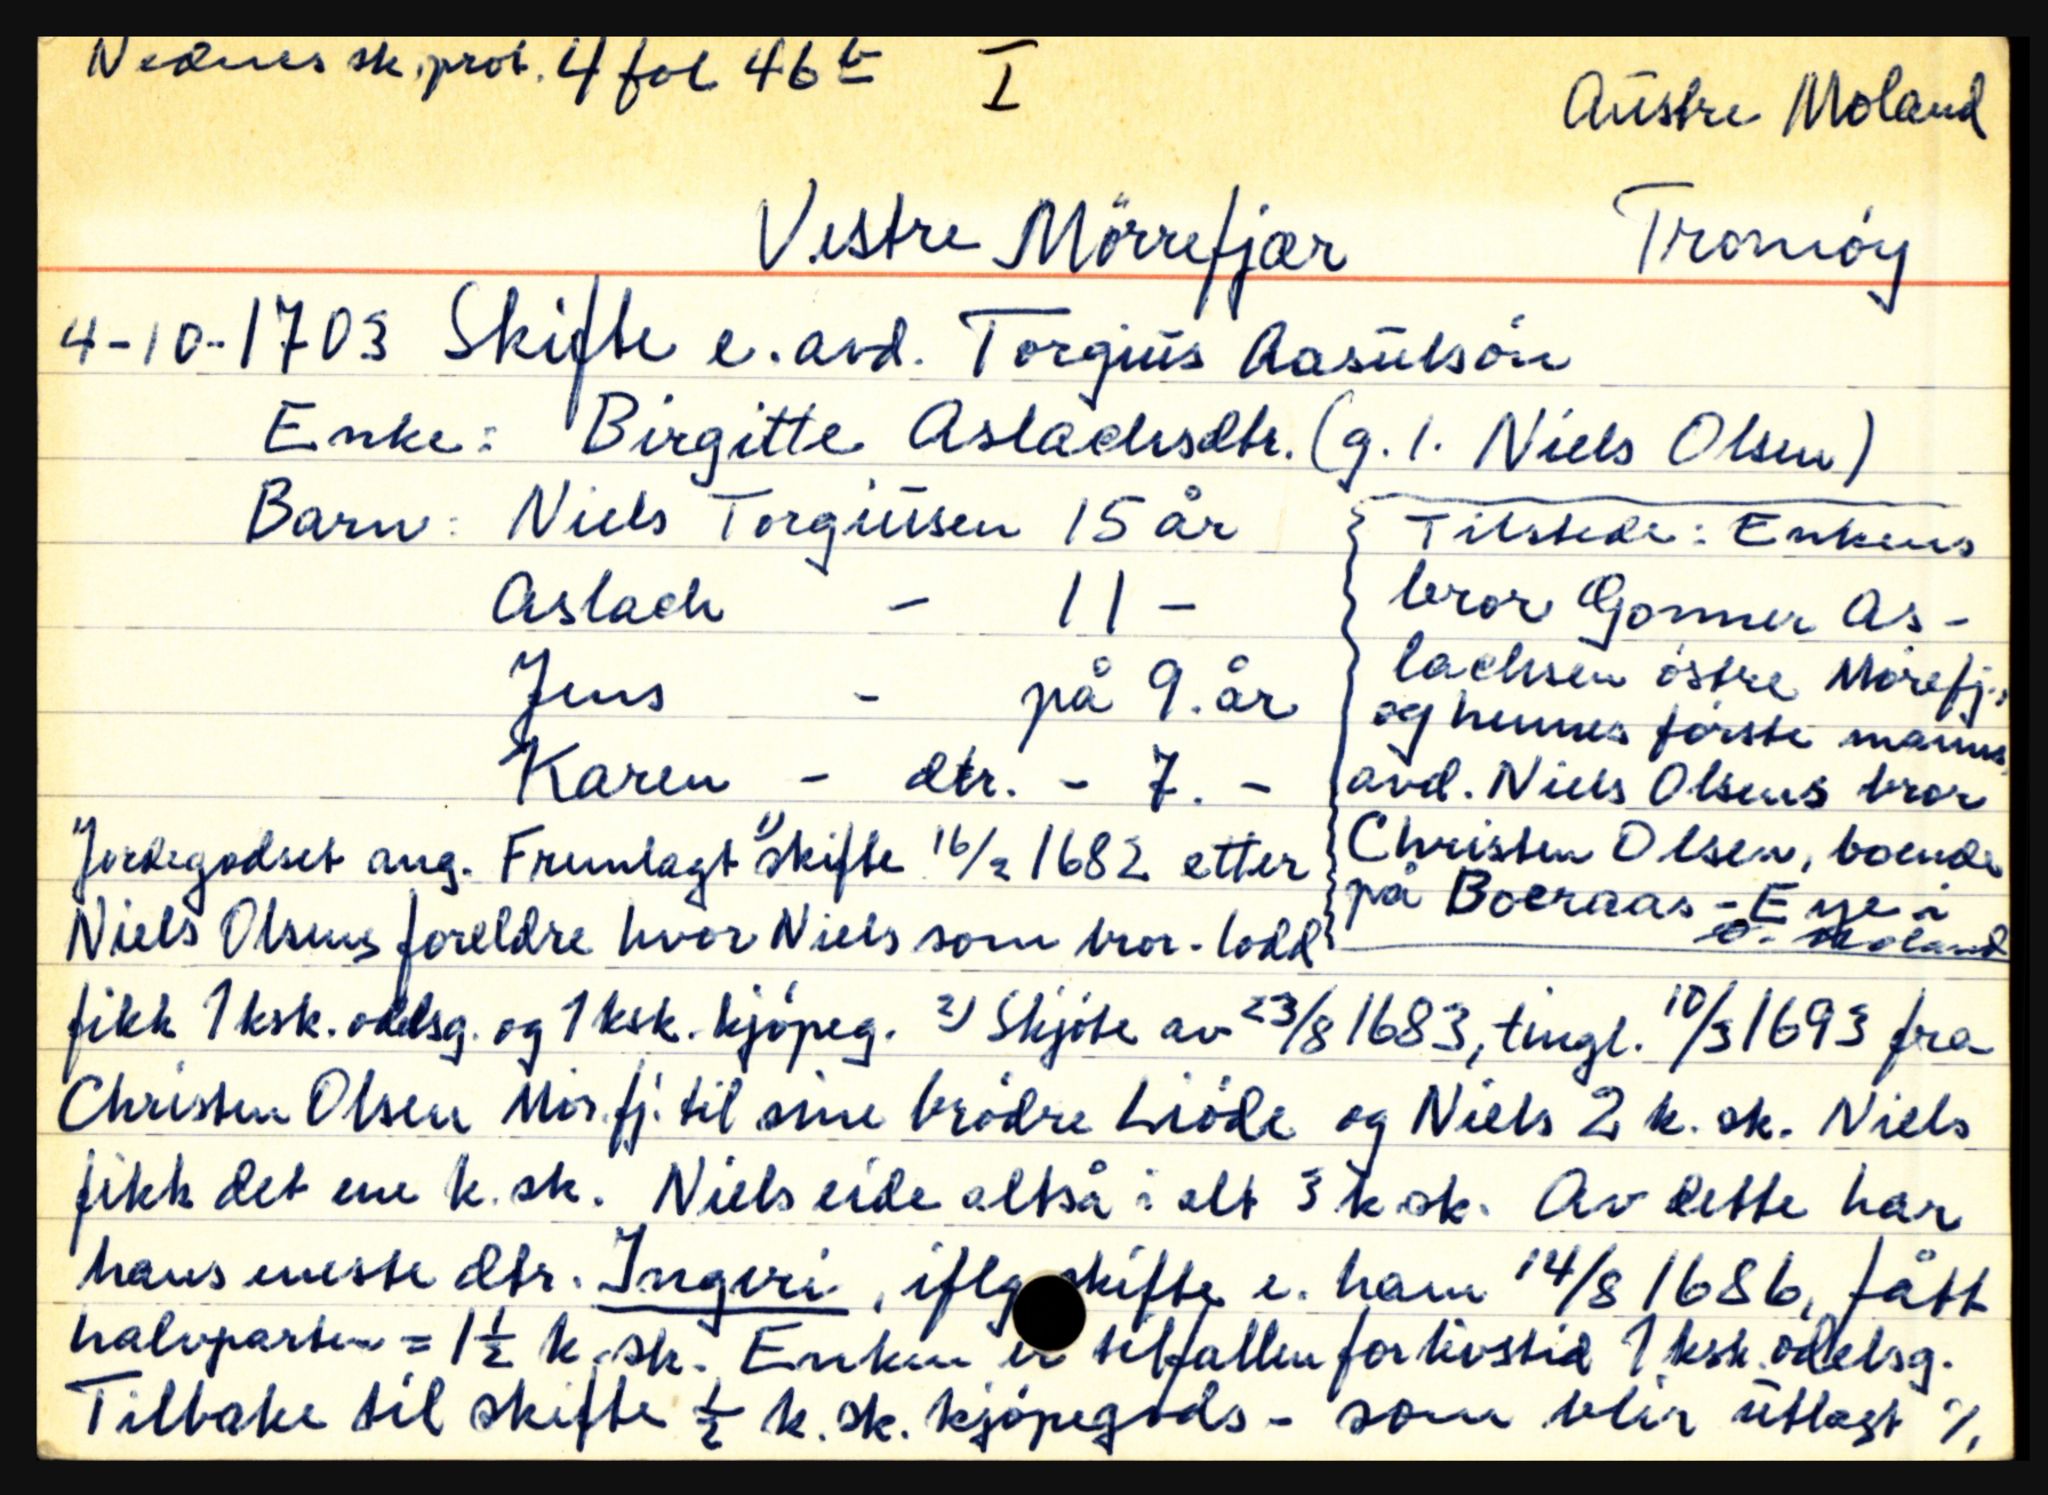 Nednes sk.prot. 4 fol 46 b I
Austre Moland
Vestre Mörrefjær Tromöy
4-10-1703 Skifte e. avd. Torgius Aasulsön
Enke: Birgitte Aslachsdtr. (g. 1. Niels Olsen)
Barn: Niels Torgiusen 15 år
Aslach - 11 -
Jens - på 9. år
Karen - dtr. - 7. -
Tilstede: Enkens
bror Gonner As-
lachsen östre Mörefj.,
og hennes förste manns,
avd. Niels Olsens bror
Christen Olsen, boende
på Boeraas - Eye i
Ö. Moland
Jordegodset ang. Fremlagt 1) skifte 16/2 1682 etter
Niels Olsens foreldre hvor Niels som bror-lodd
fikk 1 ksk. odelsg. og 1 ksk. kjöpeg. 2) Skjöte av 23/8 1683, tingl. 10/3 1693 fra
Christen Olsen Mör.fj. til sine brödre Liöde og Niels 2 k. sk. Niels
fikk det ene k. sk. Niels eide altså i alt 3 k sk. Av dette har
hans eneste dtr. Ingeri, iflg skifte e. ham 14/8 1686, fått
halvparten = 1 1/2 k. sk. Enken er tilfallen for livstid 1 ksk. odelsg.
Tilbake til skifte 1/2 k. sk. kjöpegods - som blir utlagt %.